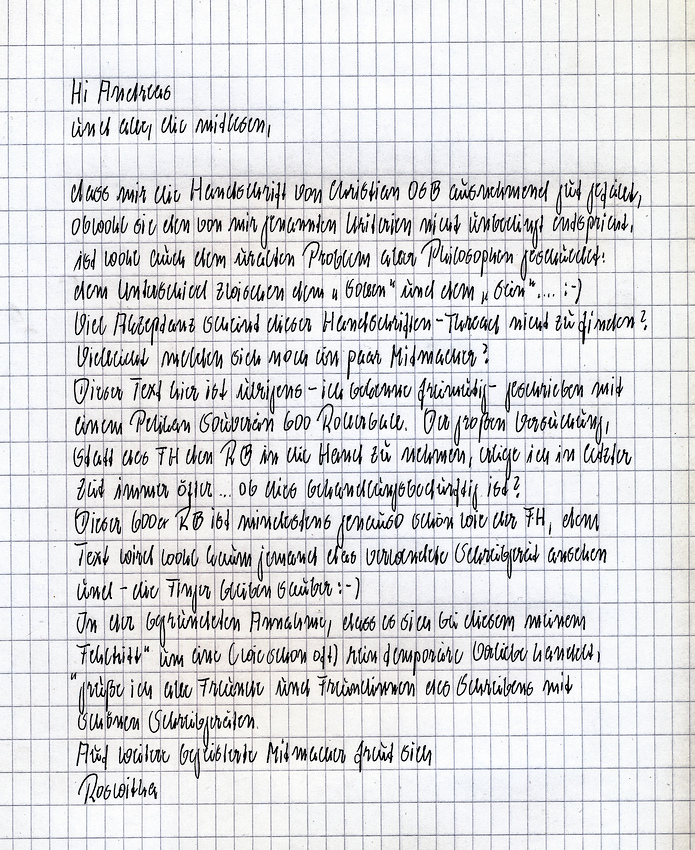 Hi Andreas
und alle, die mitlesen,
dass mir die Handschrift von Christian OSB ausnehmend gut gefällt,
obwohl sie den von mir genannten Kriterien nicht unbedingt entspricht,
ist wohl auch dem uralten Problem aller Philosophen geschuldet:
dem Unterschied zwischen dem „Sollen“ und dem „Sein“.... :-)
Viel Akzeptanz scheint dieser Handschriften-Thread nicht zu finden?
Vielleicht melden sich noch ein paar Mitmacher?
Dieser Text hier ist übrigens - ich bekenne freimütig - geschrieben mit
einem Pelikan Souverän 600 Rollerball. Der großen Versuchung,
statt des FH den RB in die Hand zu nehmen, erliege ich in letzter
Zeit immer öfter... ob dies behandlungsbedürftig ist?
Dieser 600er RB ist mindestens genauso schön wie der FH, dem
Text wird wohl kaum jemand das verwendete Schreibgerät ansehen
und - die Finger bleiben sauber :-)
In der begründeten Annahme, dass es sich bei diesem meinem
Fehltritt“ um eine (wie schon oft) rein temporäre Vorliebe handelt,
"grüße ich alle Freunde und Freundinnen des Schreibens mit
schönen Schreibgeräten.
Auf weitere begeisterte Mitmacher freut sich
Roswitha